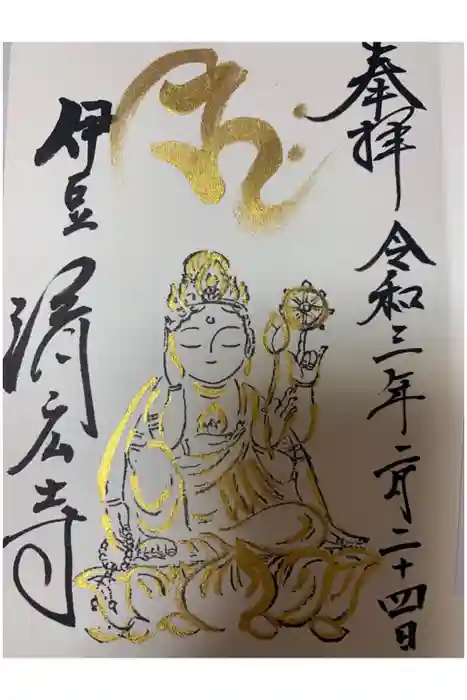 奉拝
令和三年二月二十四日
伊豆
済広寺